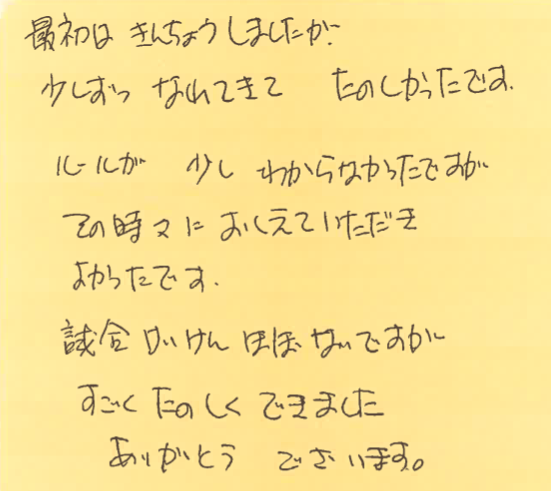 最初は きんちょうしましたが
少しずつ なれてきて たのしかったです.
ルールが 少し わからなかったですが
その時々に おしえていただき
よかったです.
試合 けいけん ほぼ ないですが
すごく たのしく できました
ありがとう ございます。